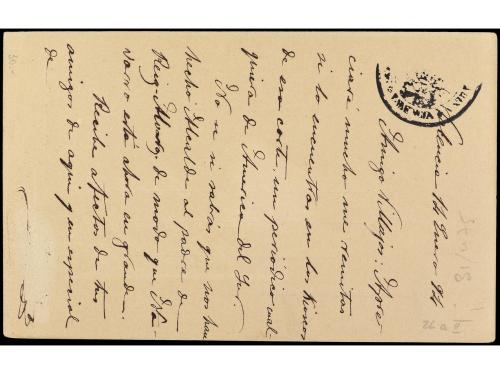 Valencia 14 Enero 94
Amigo Villajos: Apre-
ciaré mucho me remitas
si lo encuentras en los Kioscos
de esa corte, un periódico cual-
quiera de America del Sur.
No se si sabrás que nos han
hecho Alcalde al padre de
Reig de modo que
está ahora en grande.
Recibe afectos de tus
amigos de aquí y en especial
de
26 a II